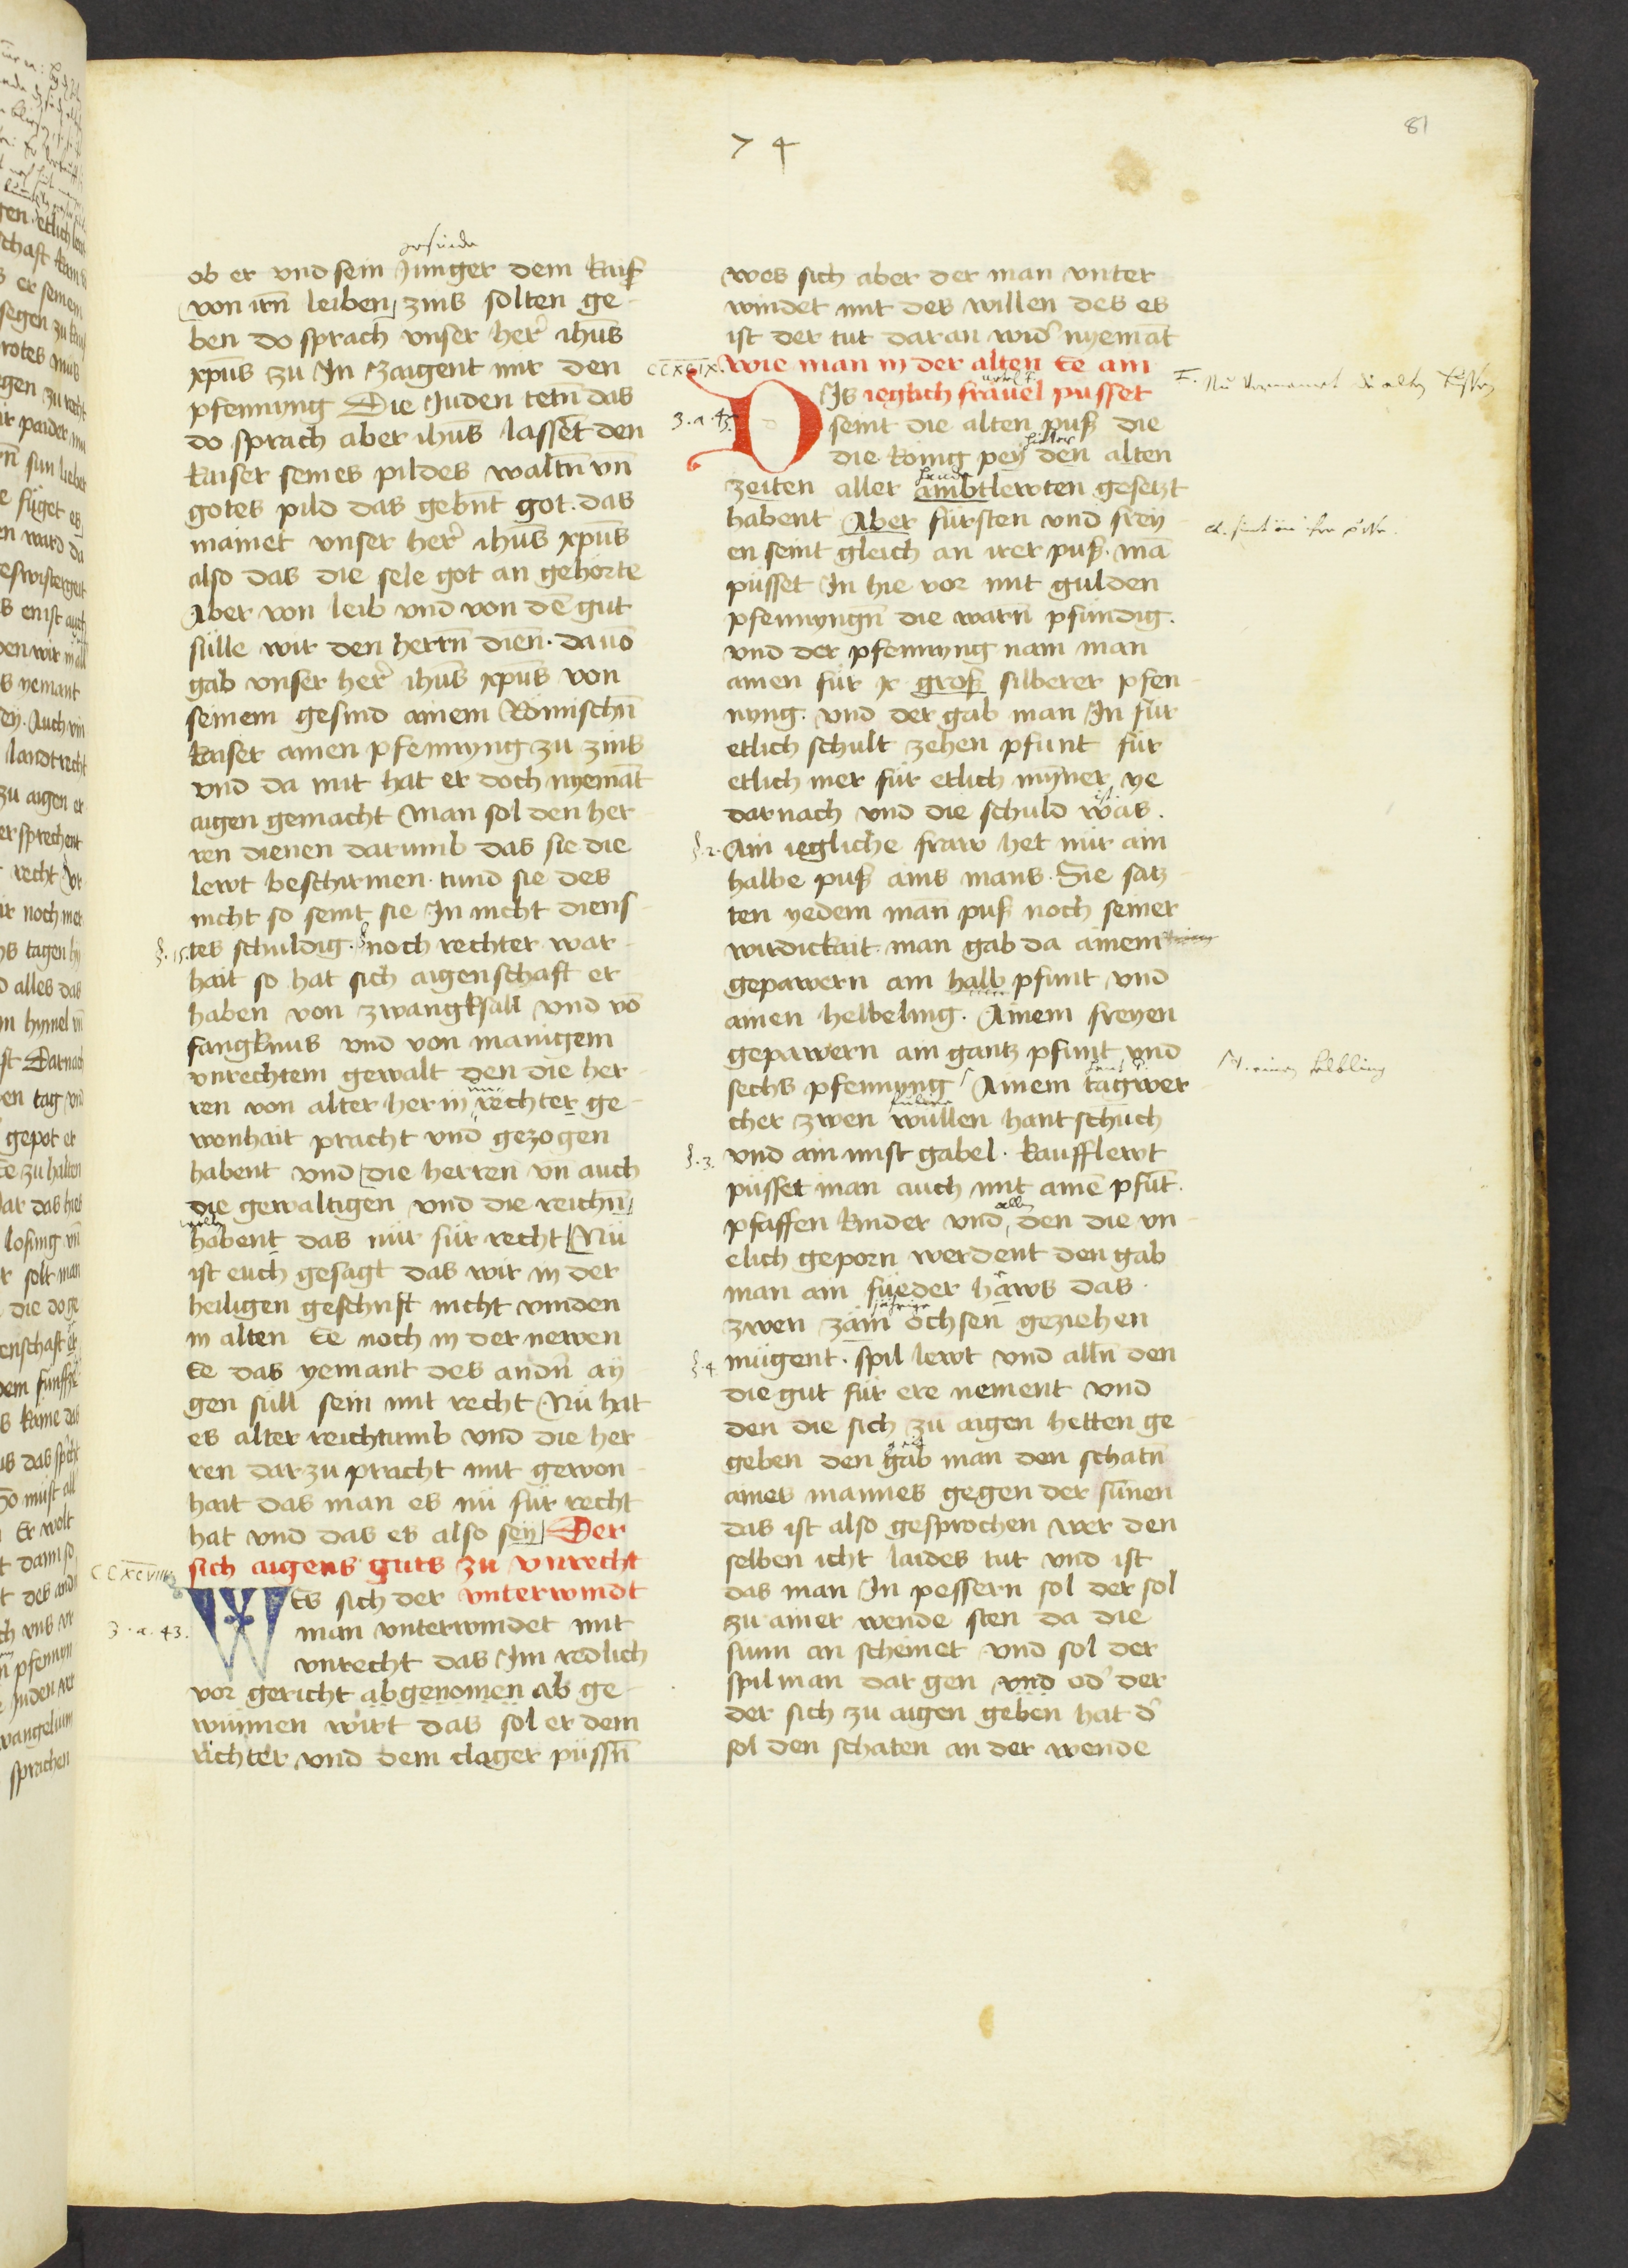 81
74
gesinde
ob er vnd sein Junger dem kaiſ
von irn̄ leiben zins solten ge-
ben do sprach vnser her̕ ihūs
xp̄us zu In Zaigent mir den
pfennyng Die Juden tetn̄ das
do sprach aber ihūs lassēt den
kaiser seines pildes waltn̄ vn̄
gotes pild das gebn̄t got. das
mainet vnser her̕ ihūs xp̄us
also das die sele got an gehorte
Aber von leib vnd von dē gut
sulle wir den herrn̄ dien̄. dauō
gab vnser her̕ ihūs xp̄us von
seinem gesind ainem Römischn̄
kaiser ainen pfennyng zu zins
vnd da mit hat er doch nyemāt
aigen gemacht Man sol den her-
ren dienen darumb das sie die
lewt beschirmen. tund sie des
nicht so seint sie In nicht diens-
§.15. tes schuldig. noch rechter war-
hait so hat sich aigenschaft er
haben von zwangksall vnd vō
fangknus vnd von manigem
vnrechtem gewalt den die her-
ren von alter her in rechter ge-
wonhait pracht vnd gezogen
habent vnd die herren vn̄ auch
die gewaltigen vnd die reichn̄
wellen
habent das nür für recht Nü
ist euch gesagt das wir in der
heiligen geschrift nicht vinden
in alten Ee noch in der newen
Ee das yemant des andn̄ ay
gen süll sein mit recht Nü hat
es alter reichtumb vnd die her-
ren darzu pracht mit gewon-
hait das man es nü für recht
hat vnd das es also sey Der
sich aigens guts zu vnrecht
WEs sich der vnterwindt
3.a.43. man vnterwindet mit
vnrecht das Im redlich
vor gericht abgenomen ab ge-
wunnen wirt das sol er dem
richter vnd dem clager püssn̄
wes sich aber der man vnter
windet mit des willen des es
ist der tut daran wid̕ nyemāt
CCXCIX. Wie man in der alten Ee ain
DIs ieglich frauel pusset
3.a.45. seint die alten puß die
hieuor
die konig pey den alten
zeiten aller ambtlewten gesetzt
habent Aber fürsten vnd frey
en seint gleich an irer puß. mā
püsset In hie vor mit gulden
pfennyngn̄ die warn̄ pfündig.
vnd der pfennyng nam man
ainen für x groß silberer pfen-
nyng. vnd der gab man In für
etlich schult zehen pfunt für
etlich mer für etlich mynner ye
ist
darnach vnd die schuld was.
§.2. Ain iegliche fraw het nür ain
halbe puß ains mans. Sie satz-
ten yedem man̄ puß noch seiner
wirdickait. man gab da ainem
gepawern ain halb pfunt vnd
ainen helbeling. Ainem freyen
gepawern ain gantz pfunt vnd
sechs pfennyng Ainem tagwer-
M. einen helbling
cher zwen wüllen hantschuch
§.3. vnd ain mist gabel. kaufflewt
püsset man auch mit ainē pfūt.
allen
pfaffen kinder vnd den die vn-
elich geporn werdent den gab
man ain füeder häws das
jährige
zwen zäm ochsen geziehen
§.4 mügent. spil lewt vnd alln̄ den
die gut für ere nement vnd
den die sich zu aigen hetten ge-
geben den gab man den schatn̄
aines mannes gegen der sūnen
das ist also gesprochen wer den
selben icht laides tut vnd ist
das man In pessern sol der sol
zu ainer wende sten da die
sunn an scheinet vnd sol der
spilman dar gen vnd od̕ der
der sich zu aigen geben hat d̕
sol den schaten an der wende